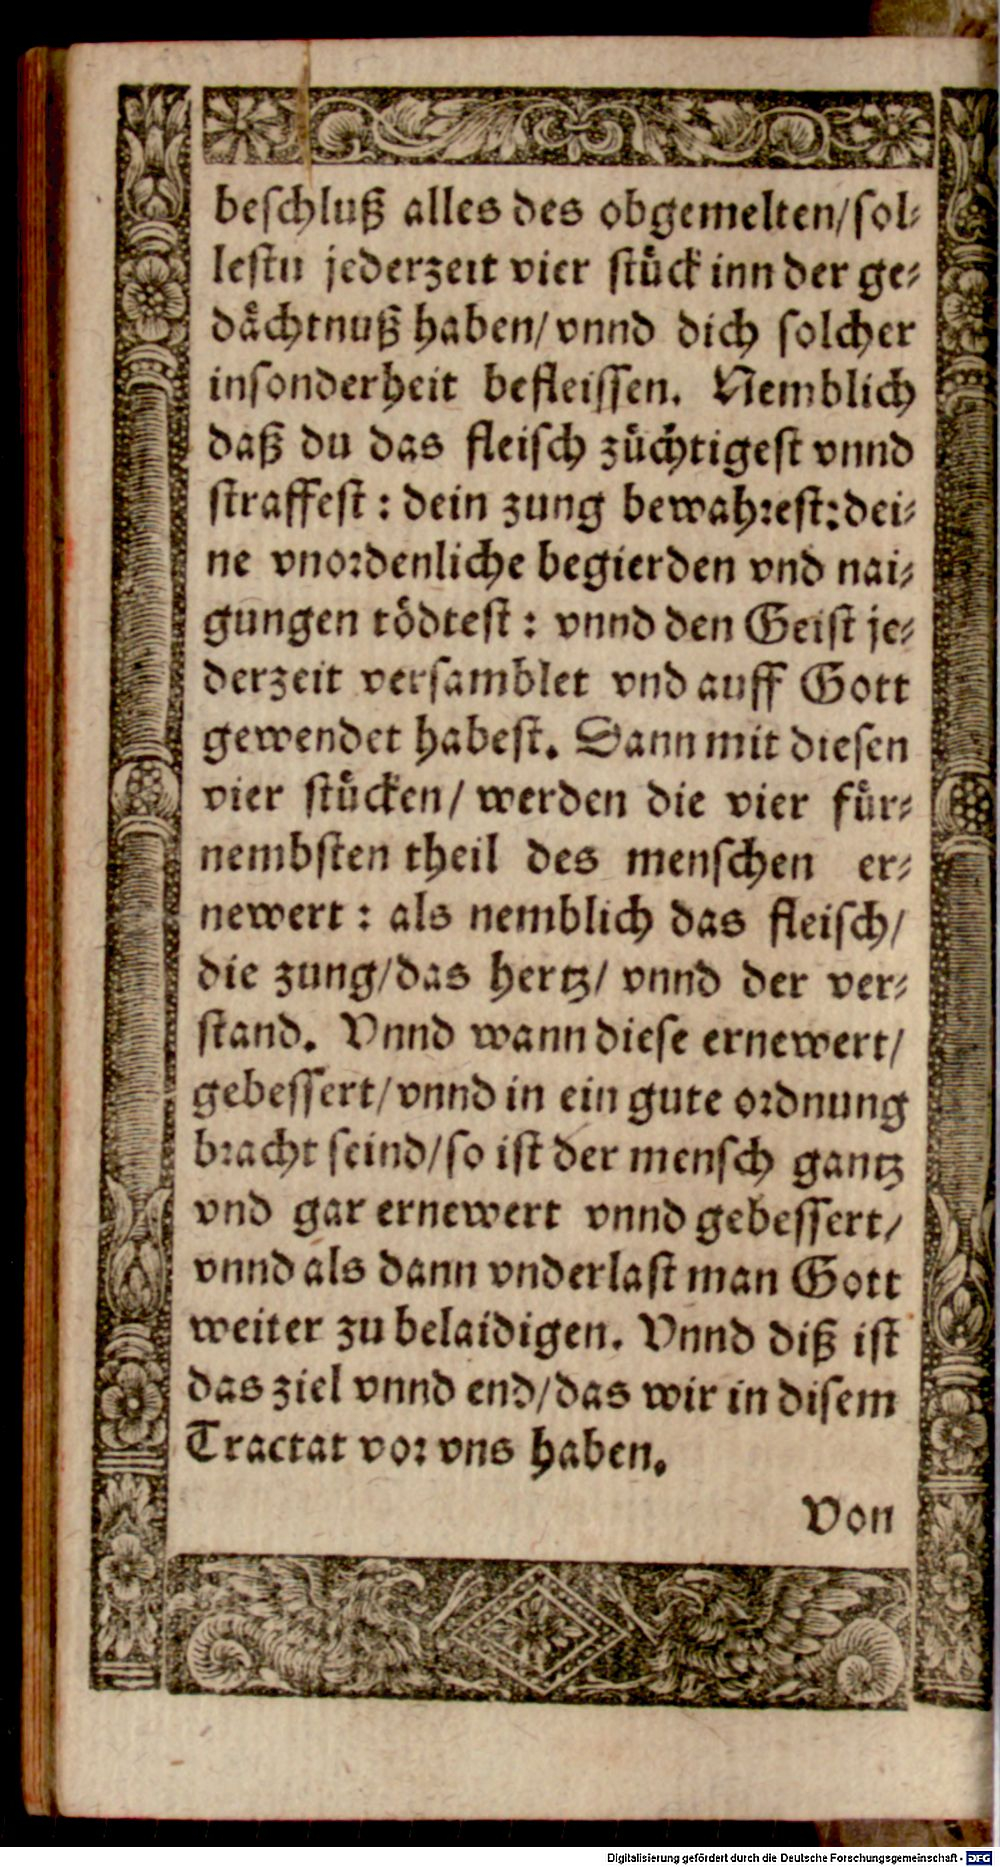 beſchluß alles des obgemelten/ſol⸗
leſtu jederzeit vier ſtuͤck inn der ge⸗
daͤchtnuß haben/ vnnd dich ſolcher
inſonderheit befleiſſen. Nemblich
daß du das fleiſch zuͤchtigeſt vnnd
ſtraffeſt: dein zung bewahꝛeſt: dei⸗
ne vnoꝛdenliche begierden vnd nai⸗
gungen toͤdteſt: vnnd den Geiſt je⸗
derzeit verſamblet vnd auff Gott
gewendet habeſt. Dann mit dieſen
vier ſtuͤcken/ werden die vier fuͤr⸗
nembſten theil des menſchen er⸗
newert: als nemblich das fleiſch/
die zung/das hertz/ vnnd der ver⸗
ſtand. Vnnd wann dieſe ernewert/
gebeſſert/ vnnd in ein gute oꝛdnung
bꝛacht ſeind/ſo iſt der menſch gantz
vnd gar ernewert vnnd gebeſſert/
vnnd als dann vnderlaſt man Gott
weiter zu belaidigen. Vnnd diß iſt
das ziel vnnd end/das wir in diſem
Tractat voꝛ vns haben.
Von
Digitalisierung gefördert durch die Deutsche Forschungsgemeinschaft - DFG